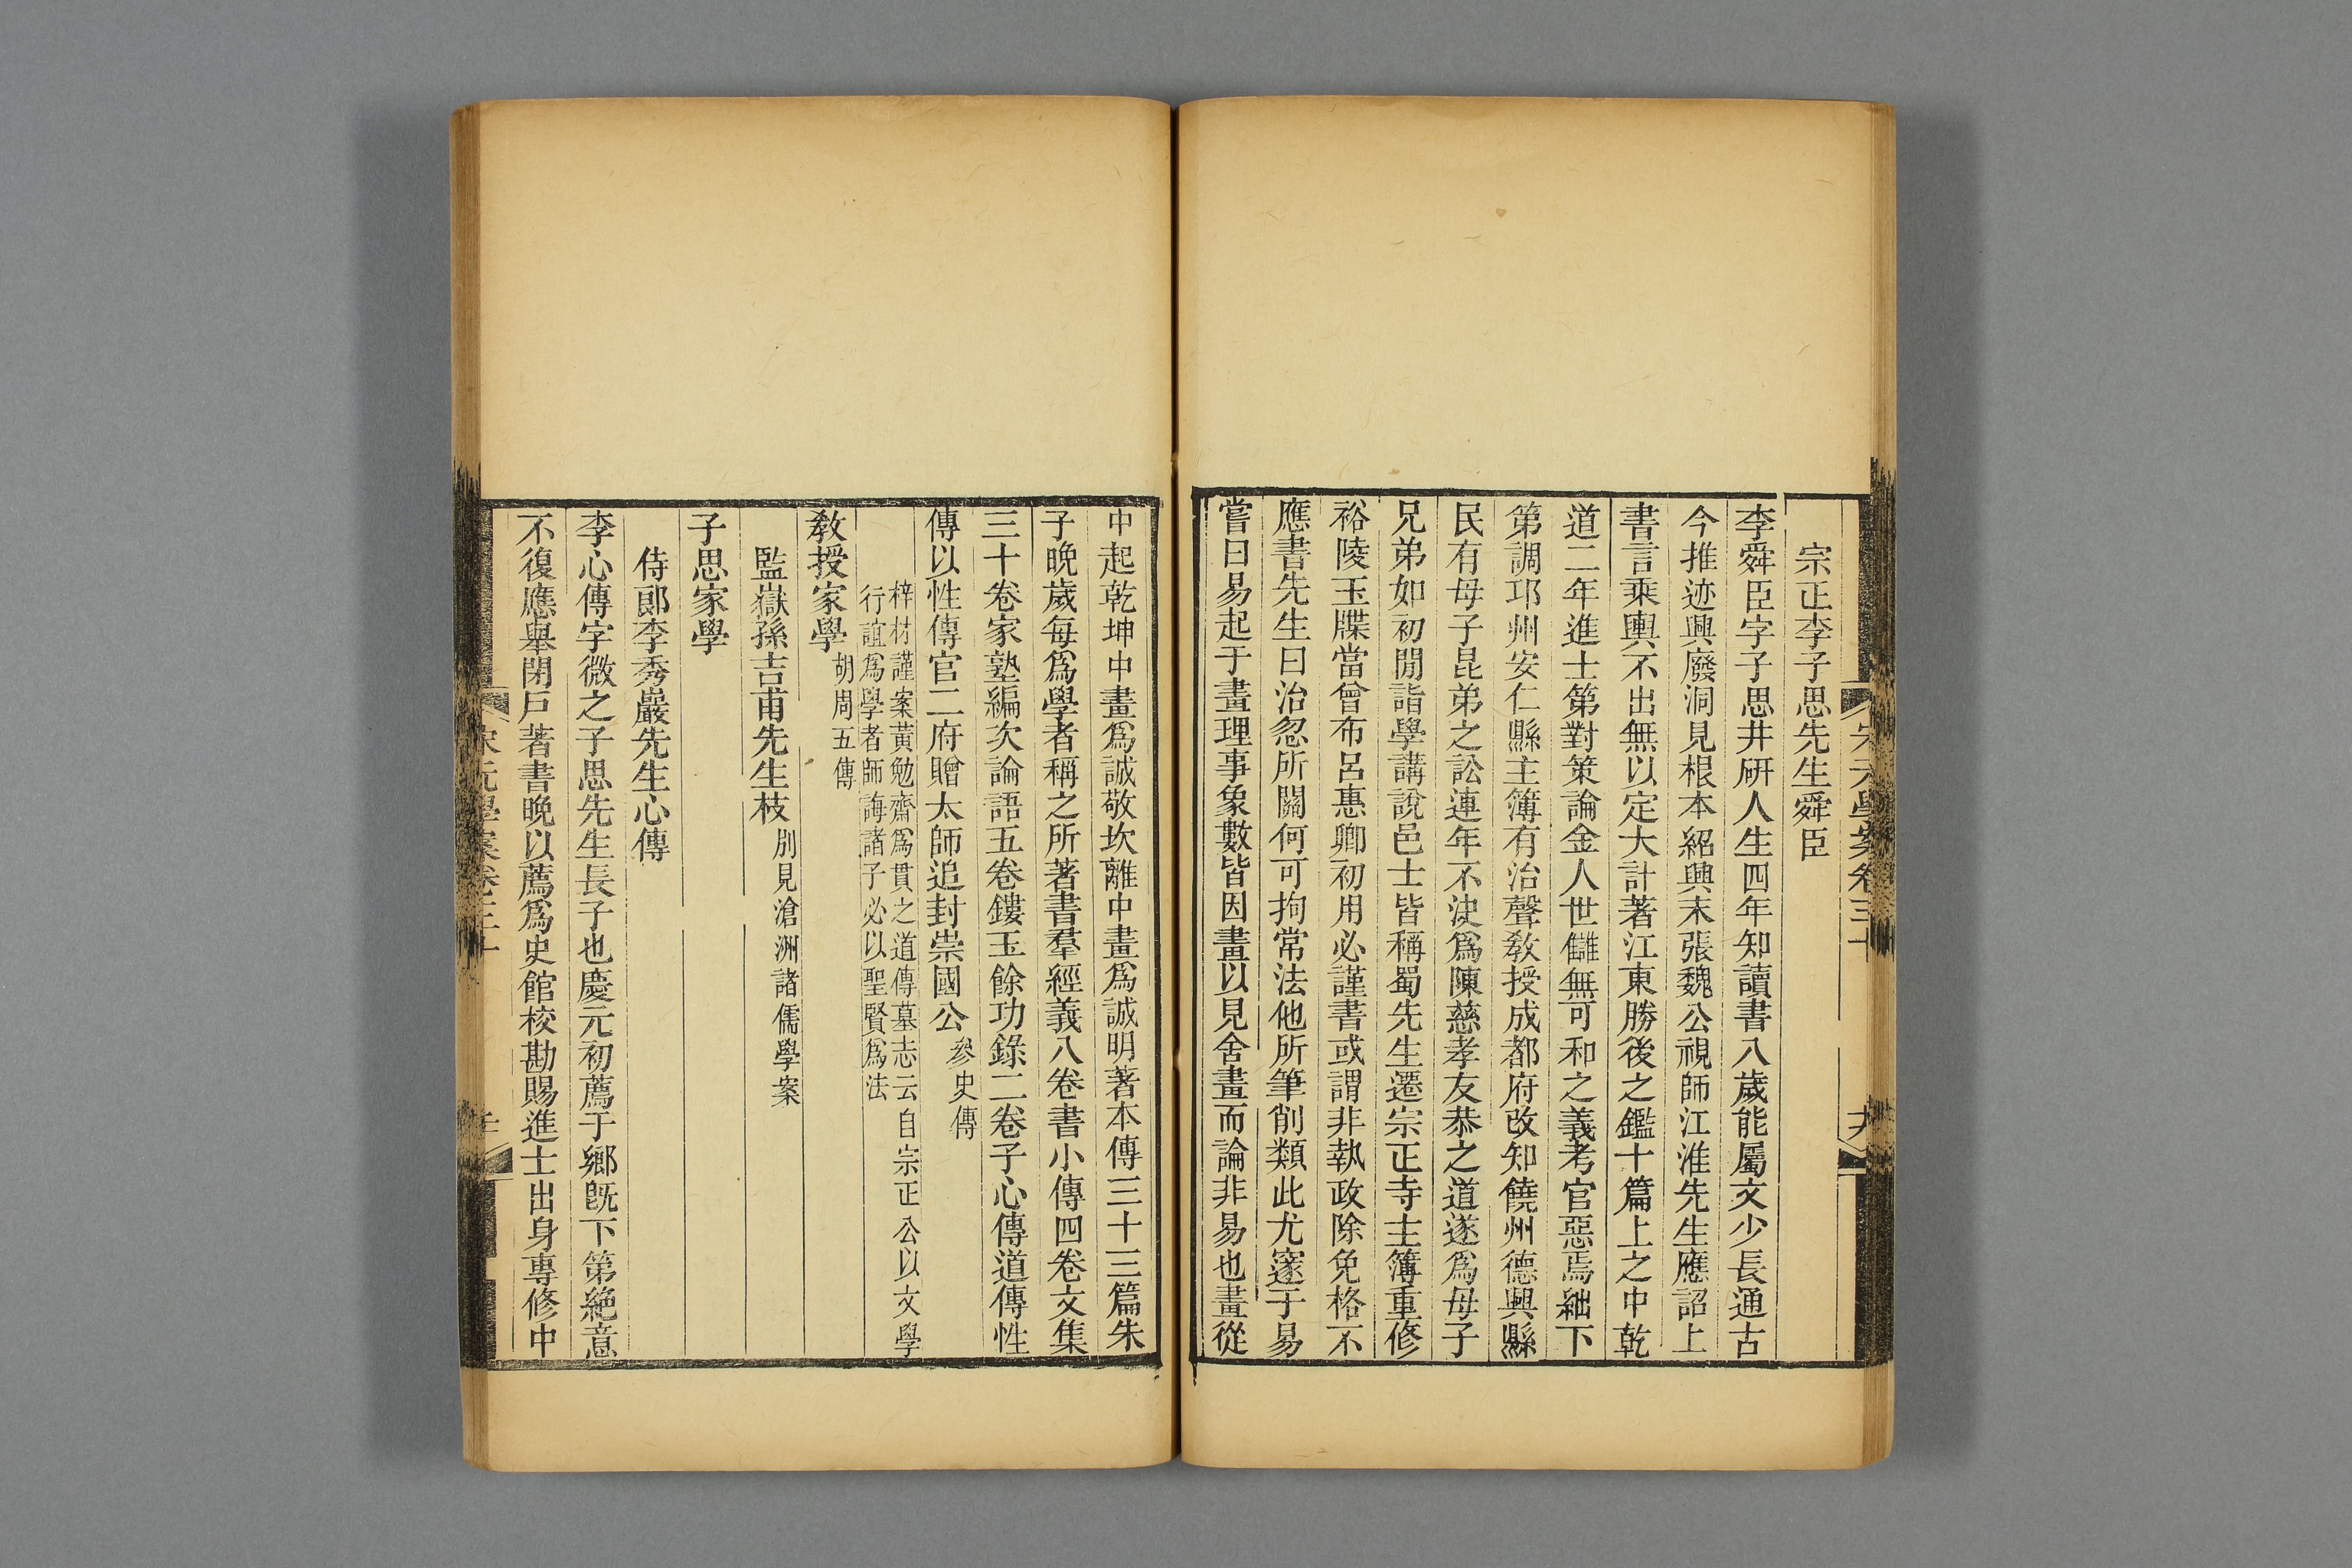 宗正李子思先生舜臣
李舜臣字子思井研人生四年知讀書八歲能屬文少長通古
今推迹興廢洞見根本紹興末張魏公視師江淮先生應詔上
書言乘輿不出無以定大計著江東勝後之鑑十篇上之中乾
道二年進士第對策論金人世讎無可和之義考官惡焉絀下
第調邛州安仁縣主簿有治聲敎授成都府改知饒州德興縣
民有母子昆弟之訟連年不決爲陳慈孝友恭之道遂爲母子
兄弟如初閒詣學講說邑士皆稱蜀先生遷宗正寺主簿重修
裕陵玉牒當曾布呂惠卿初用必謹書或謂非執政除免格不
應書先生曰治忽所關何可拘常法他所筆削類此尤邃于易
嘗曰易起于畫理事象數皆因畫以見舍畫而論非易也畫從
中起乾坤中畫爲誠敬坎離中畫爲誠明著本傳三十三篇朱
子晚歲每爲學者稱之所著書羣經義八卷書小傳四卷文集
三十卷家塾編次論語五卷鏤玉餘功錄二卷子心傳道傳性
傳以性傳官二府贈太師追封崇國公參史傳
梓材謹案黃勉齋爲貫之道傳墓志云自宗正公以文學
行誼爲學者師誨諸子必以聖賢爲法
敎授家學胡周五傳
監嶽孫吉甫先生枝別見滄洲諸儒學案
子思家學
侍郞李秀巖先生心傳
李心傳字微之子思先生長子也慶元初薦于鄉旣下第絕意
不復應舉閉戶著書晚以薦爲史館校勘賜進士出身專修中